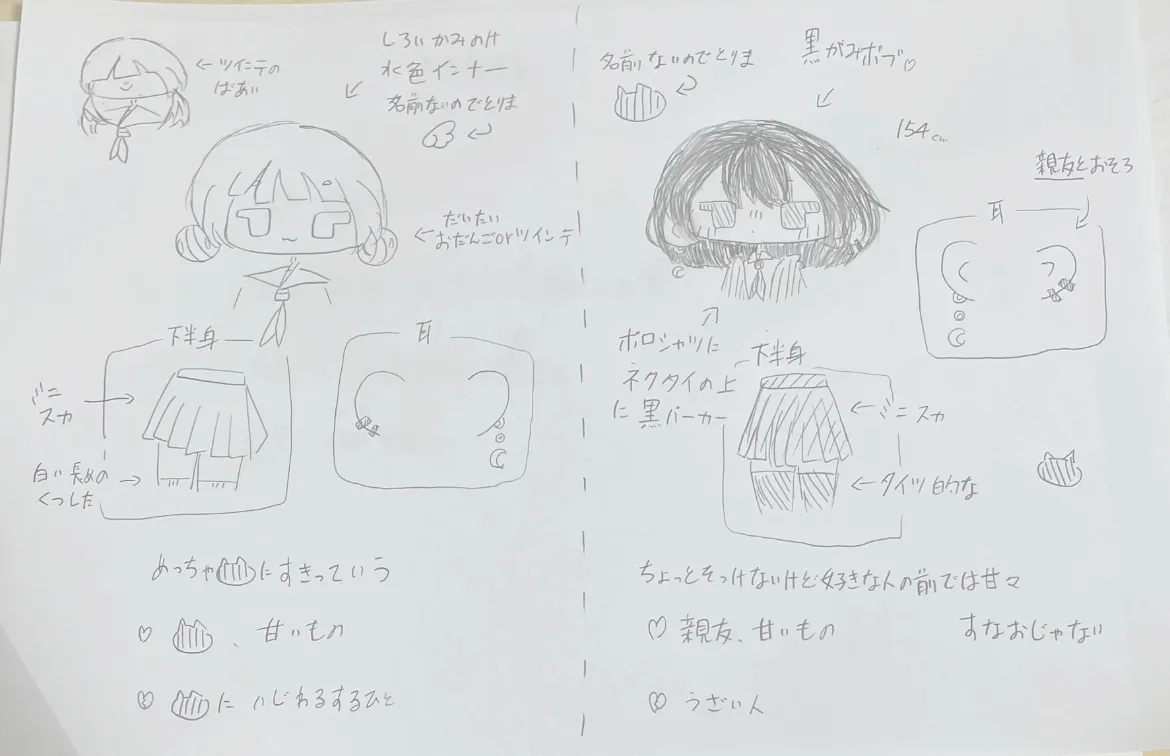 ツインテの
ばあい
しろいかみのけ
水色インナー
名前ないのでとりま
だいたい
おだんごorツインテ
下半身
ミニ
スカ
白い長めの
くつした
耳
めっちゃ
にすきっていう
、甘いもの
にいじわるするひと
名前ないのでとりま
黒がみボブ♡
154cm
親友とおそろ
耳
ポロシャツに
ネクタイの上
に黒パーカー
下半身
ミニスカ
タイツ的な
ちょっとそっけないけど好きな人の前では甘々
♡ 親友、甘いもの
すなおじゃない
うざい人